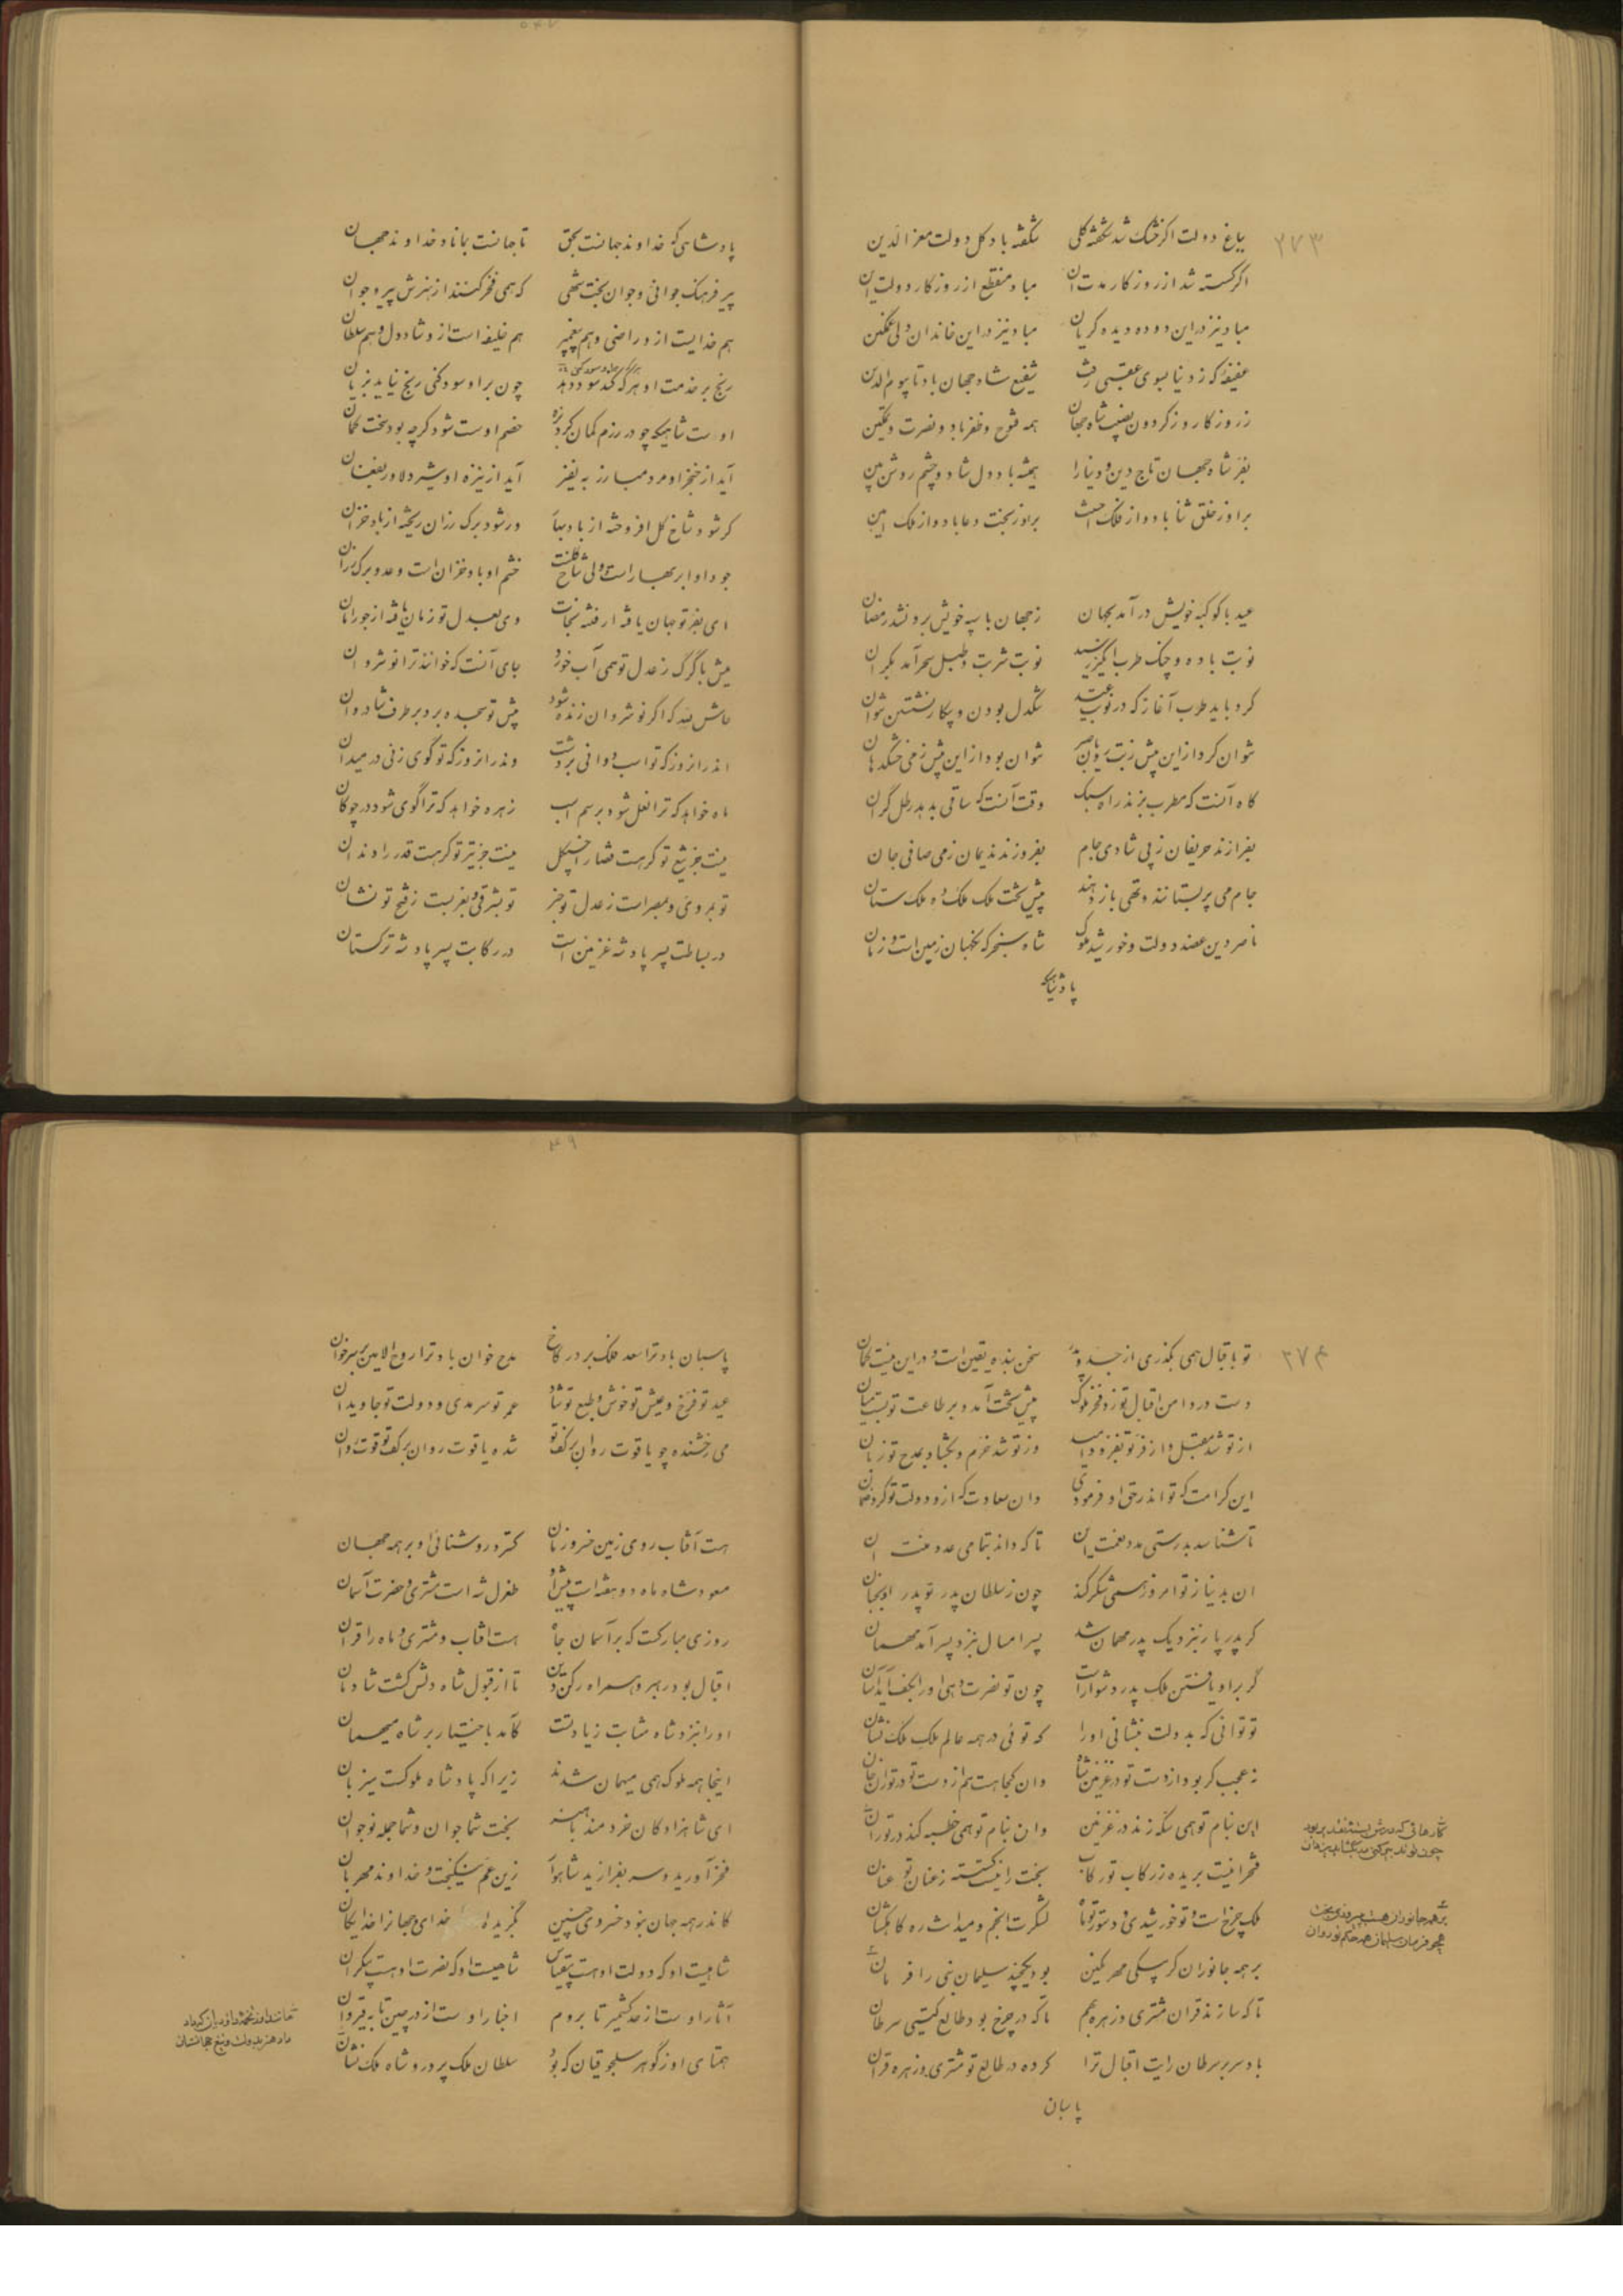 ۲۷۳
بباغ دولت اگر خشک شد شکفته گلی شکفته باد گل دولت معز الدین
اگر گسسته شد از روزگار مدت آن مباد منقطع از روزگار دولت این
مباد نیز در این دوده دیده گریان مباد نیز در این خاندان ولی غمگین
عفیفه که ز دنیا بسوی عقبی رفت شفیع شاه جهان باد تا بیوم الدین
ز روزگار و ز گردون نصیب شاه جهان همه فتوح و ظفر باد و نصرت و تمکین
بفر شاه جهان تاج دین و دنیا را همیشه باد دل شاد و چشم روشن بین
بر او ز خلق ثنا باد و از فلک احسنت بر او ز بخت دعا باد و از ملک آمین
عید با کوکبه خویش در آمد بجهان ز جهان با سپه خویش برون شد رمضان
نوبت باده و چنگ طرب انگیز رسید نوبت شربت و طبل سحر آمد بکران
کرد باید طرب آغاز که در نوبت عید سنگدل بودن و بیکار نشستن نتوان
نتوان کرد از این بیش زبت روی بصبر نتوان بود از این بیش ز می خشک دهان
گاه آنست که مطرب بزند راه سبک وقت آنست که ساقی بدهد رطل گران
بفرازند حریفان ز پی شادی جام بفروزند ندیمان ز می صافی جان
جام می پر بستانند و تهی باز دهند پیش تخت ملک ملک ده ملک ستان
ناصر دین عضد دولت و خورشید ملوک شاه سنجر که نگهبان زمین است و زمان
پادشاهی که
پادشاهی که خداوند جهانست بحق تا جهانست بماناد خداوند جهان
پیر فرهنگ جوانی و جوان بخت شهی که همی فخر کنند از هنرش پیر و جوان
هم خدایست از او راضی و هم پیغمبر هم خلیفه است از او شاد دل و هم سلطان
رنج بر خدمت او هر که کند سود دهد چون بر او سود کنی رنج نیاید بزیان
اوست شاهیکه چو در رزم کمان کرد بزه خصم اوست شود گرچه بود سخت کمان
آید از خنجر او مرد مبارز به نفیر آید از نیزه او شیر دلاور بفغان
گر شود شاخ گل افروخته از باد بهار ور شود برگ رزان ریخته از باد خزان
جود او ابر بهار است و ولی شاخ گلست خشم او باد خزان است و عدو برگ رزان
ای بفر تو جهان یافته از فتنه نجات وی بعدل تو زمان یافته از جور امان
میش با گرگ ز عدل تو همی آب خورد جای آنست که خوانند ترا نوشروان
حاش لله که اگر نوشروان زنده شود پیش تو سجده برد بر طرف شادروان
اندر آنروز که تو اسب دوانی بر دشت وندر آنروز که تو گوی زنی در میدان
ماه خواهد که ترا نعل شود بر سم اسب زهره خواهد که ترا گوی شود در چوگان
نیست جز تیغ تو گر هست قضا را چنگل نیست جز تیر تو گر هست قدر را دندان
تو بمروی و بمصر است ز عدل تو خبر تو بشرقی و بغربست ز فتح تو نشان
در بساطت پسر پادشه غزنین است در رکابت پسر پادشه ترکستان
۲۷۴
تو باقبال همی بگذری از جد و پدر سخن بنده یقین است و در این نیست گمان
دست در دامن اقبال تو زد فخر ملوک پیش تخت آمد و بر طاعت تو بست میان
از تو شد مقبل و از فر تو بفزود امید وز تو شد خرم و بگشاد بمدح تو زبان
این کرامت که تو اندر حق او فرمودی وان سعادت که از او دولت تو کرد ضمان
تا شناسد بدرستی مدد نعمت این تا که داند بتمامی عدد منت آن
ان بدنیا ز تو امروز همی شکر کند چون ز سلطان پدر تو پدر او بجنان
گر پدر پار بنزدیک پدر مهمان شد پسر امسال بنزد پسر آمد مهمان
گر بر او یافتن ملک پدر دشوار است چون تو نصرت دهی او را بکف آید آسان
تو توانی که بدولت بنشانی او را که توئی در همه عالم ملک ملک نشان
نه عجب گر بود از دست تو در غزنین شاه وان کجا هست هم از دست تو در توران خان
این بنام تو همی سکه زند در غزنین وان بنام تو همی خطبه کند در توران
فتح را نیست بریده ز رکاب تو رکاب بخت را نیست گسسته ز عنان تو عنان
ملک چرخ است و تو خورشیدی و دستور تو ماه لشگرت انجم و میدانت ره کاهکشان
بر همه جانوران گر بیکی مهر نگین بود یکچند سلیمان نبی را فرمان
تا که سازند قران مشتری و زهره بهم تا که در چرخ بود طالع گیتی سرطان
باد سر بر سرطان رایت اقبال ترا کرده در طالع تو مشتری و زهره قران
پاسبان
پاسبان باد ترا سعد فلک بر در کاخ مدح خوان باد ترا روح الامین بر سر خوان
عید تو فرخ و عیش تو خوش و طبع تو شاد عمر تو سرمدی و دولت تو جاویدان
می رخشنده چو یاقوت روان بر کف تو شده یاقوت روان بر کف تو قوت روان
هست آفتاب روی زمین خسرو زمان گسترده روشنائی او بر همه جهان
مسعود شاه ماه دو هفته است پیش او طغرل شه است مشتری و حضرت آسمان
روزی مبارکست که بر آسمان جاه هست آفتاب و مشتری و ماه را قران
اقبال بود رهبر و همراه رکن دین تا از قبول شاه دلش گشت شادمان
او را بنزد شاه مثابت زیادتست کآمد باختیار بر شاه میهمان
اینجا همه ملوک همی میهمان شدند زیرا که پادشاه ملوکست میزبان
ای شاهزادگان خردمند با هنر بخت شما جوان و شما جمله نوجوان
فخر آورید و سر بفرازید شاهوار زین عم نیکبخت و خداوند مهربان
کاندر همه جهان بنود خسروی چنین بگزیده خدای و جهانرا خدایگان
شاهیست او که دولت او هست بیقیاس شاهیست او که نصرت او هست بیکران
آثار اوست از حد کشمیر تا بروم اخبار اوست از در چین تا به قیروان
همتای او ز گوهر سلجوقیان که بود سلطان ملک پرور و شاه ملک نشان